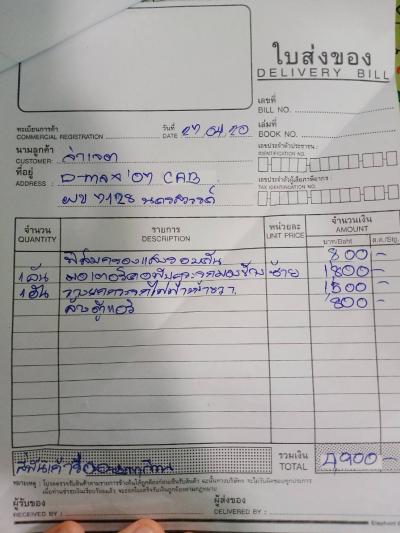 ใบส่งของ
DELIVERY BILL
เลขที่
BILL NO.
ทะเบียนการค้า
COMMERCIAL REGISTRATION
วันที่
DATE 27 04 20
เล่มที่
BOOK NO.
นามลูกค้า
CUSTOMER:
เลขประจำตัวประชาชน :
IDENTIFICATION NO.
ที่อยู่
ADDRESS : D-max '07 CAB
เลขประจำตัวผู้เสียภาษีอากร :
TAX IDENTIFICATION NO.
7128 นครสวรรค์
จำนวน
QUANTITY
รายการ
DESCRIPTION
หน่วยละ
UNIT PRICE
จำนวนเงิน
AMOUNT
บาท/Baht
ส.ต./Stg.
ฟิล์มกรองแสงรอบคัน 800 -
1 อัน ซ้าย 1800 -
1 อัน 1500 -
ล้างตู้แอร์ 800 -
สี่พันเก้าร้อยบาทถ้วน
รวมเงิน
TOTAL 4,900 -
ผู้รับของ
RECEIVED BY :
ผู้ส่งของ
DELIVERED BY :